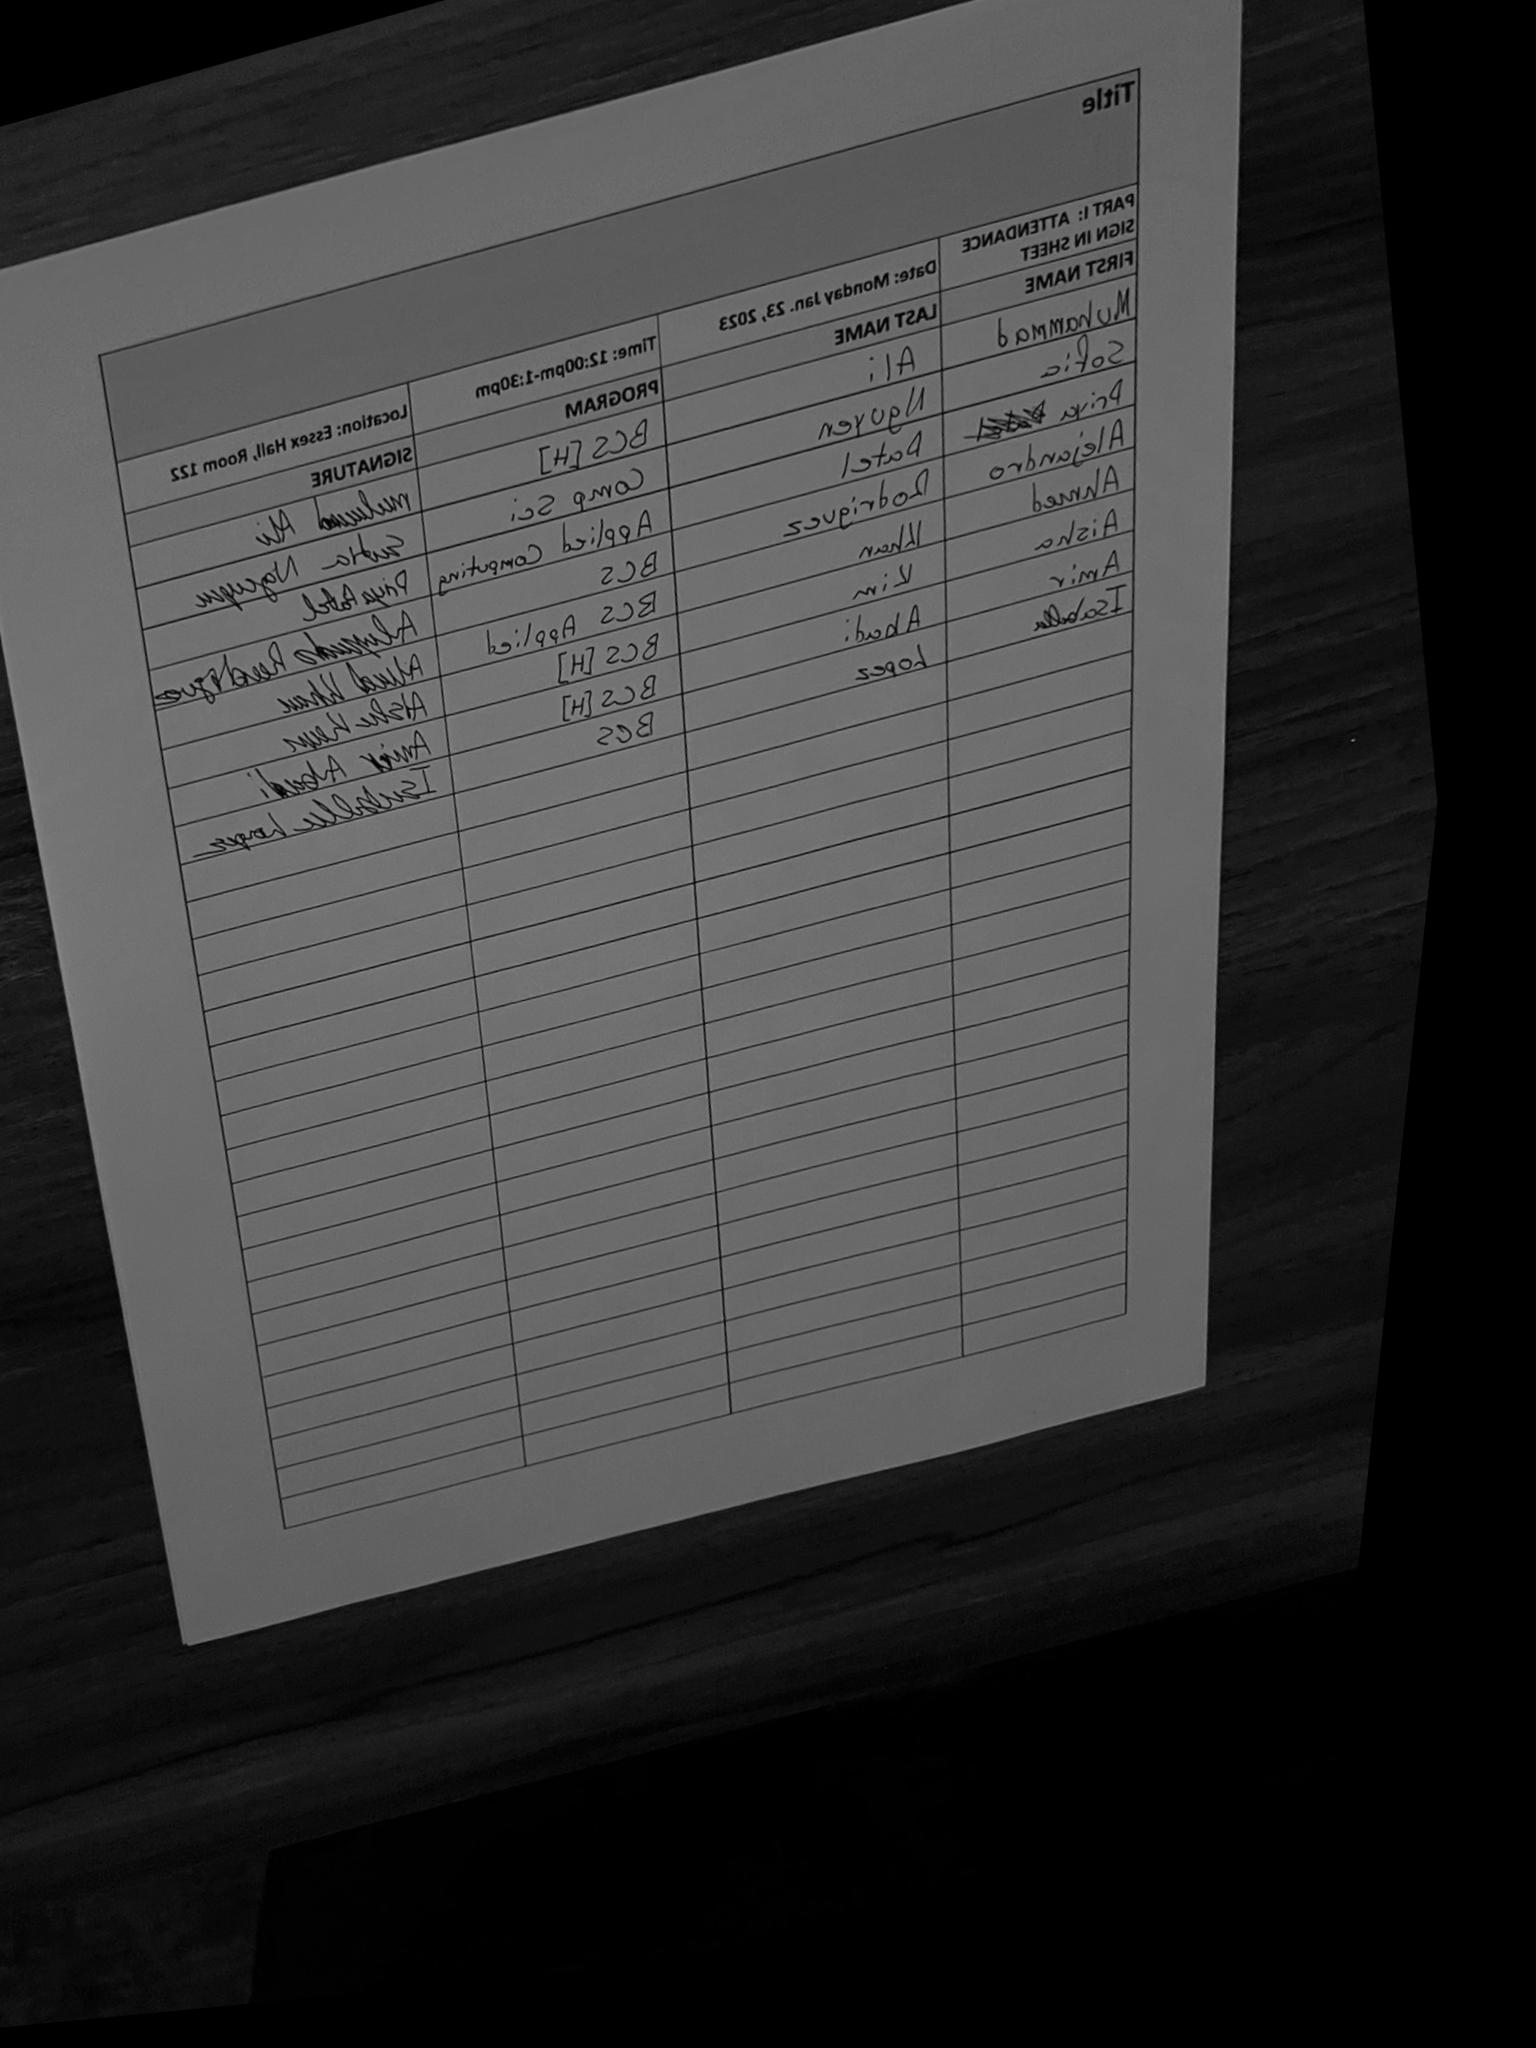 Title
PART I: ATTENDANCE SIGN IN SHEET Date: Monday Jan. 23, 2023 Time: 12:00pm-1:30pm Location: Essex Hall, Room 122
FIRST NAME LAST NAME PROGRAM SIGNATURE
Muhammad Ali BCS [H] Ali
Sofia Nguyen Comp Sci Nguyen
Priya Patel Applied Computing Priya Patel
Alejandro Rodriguez BCS
Ahmed Khan BCS Applied Khan
Aisha Kim BCS [H]
Amir Abadi BCS [H] Amir Abadi
Isabella Lopez BCS Lopez